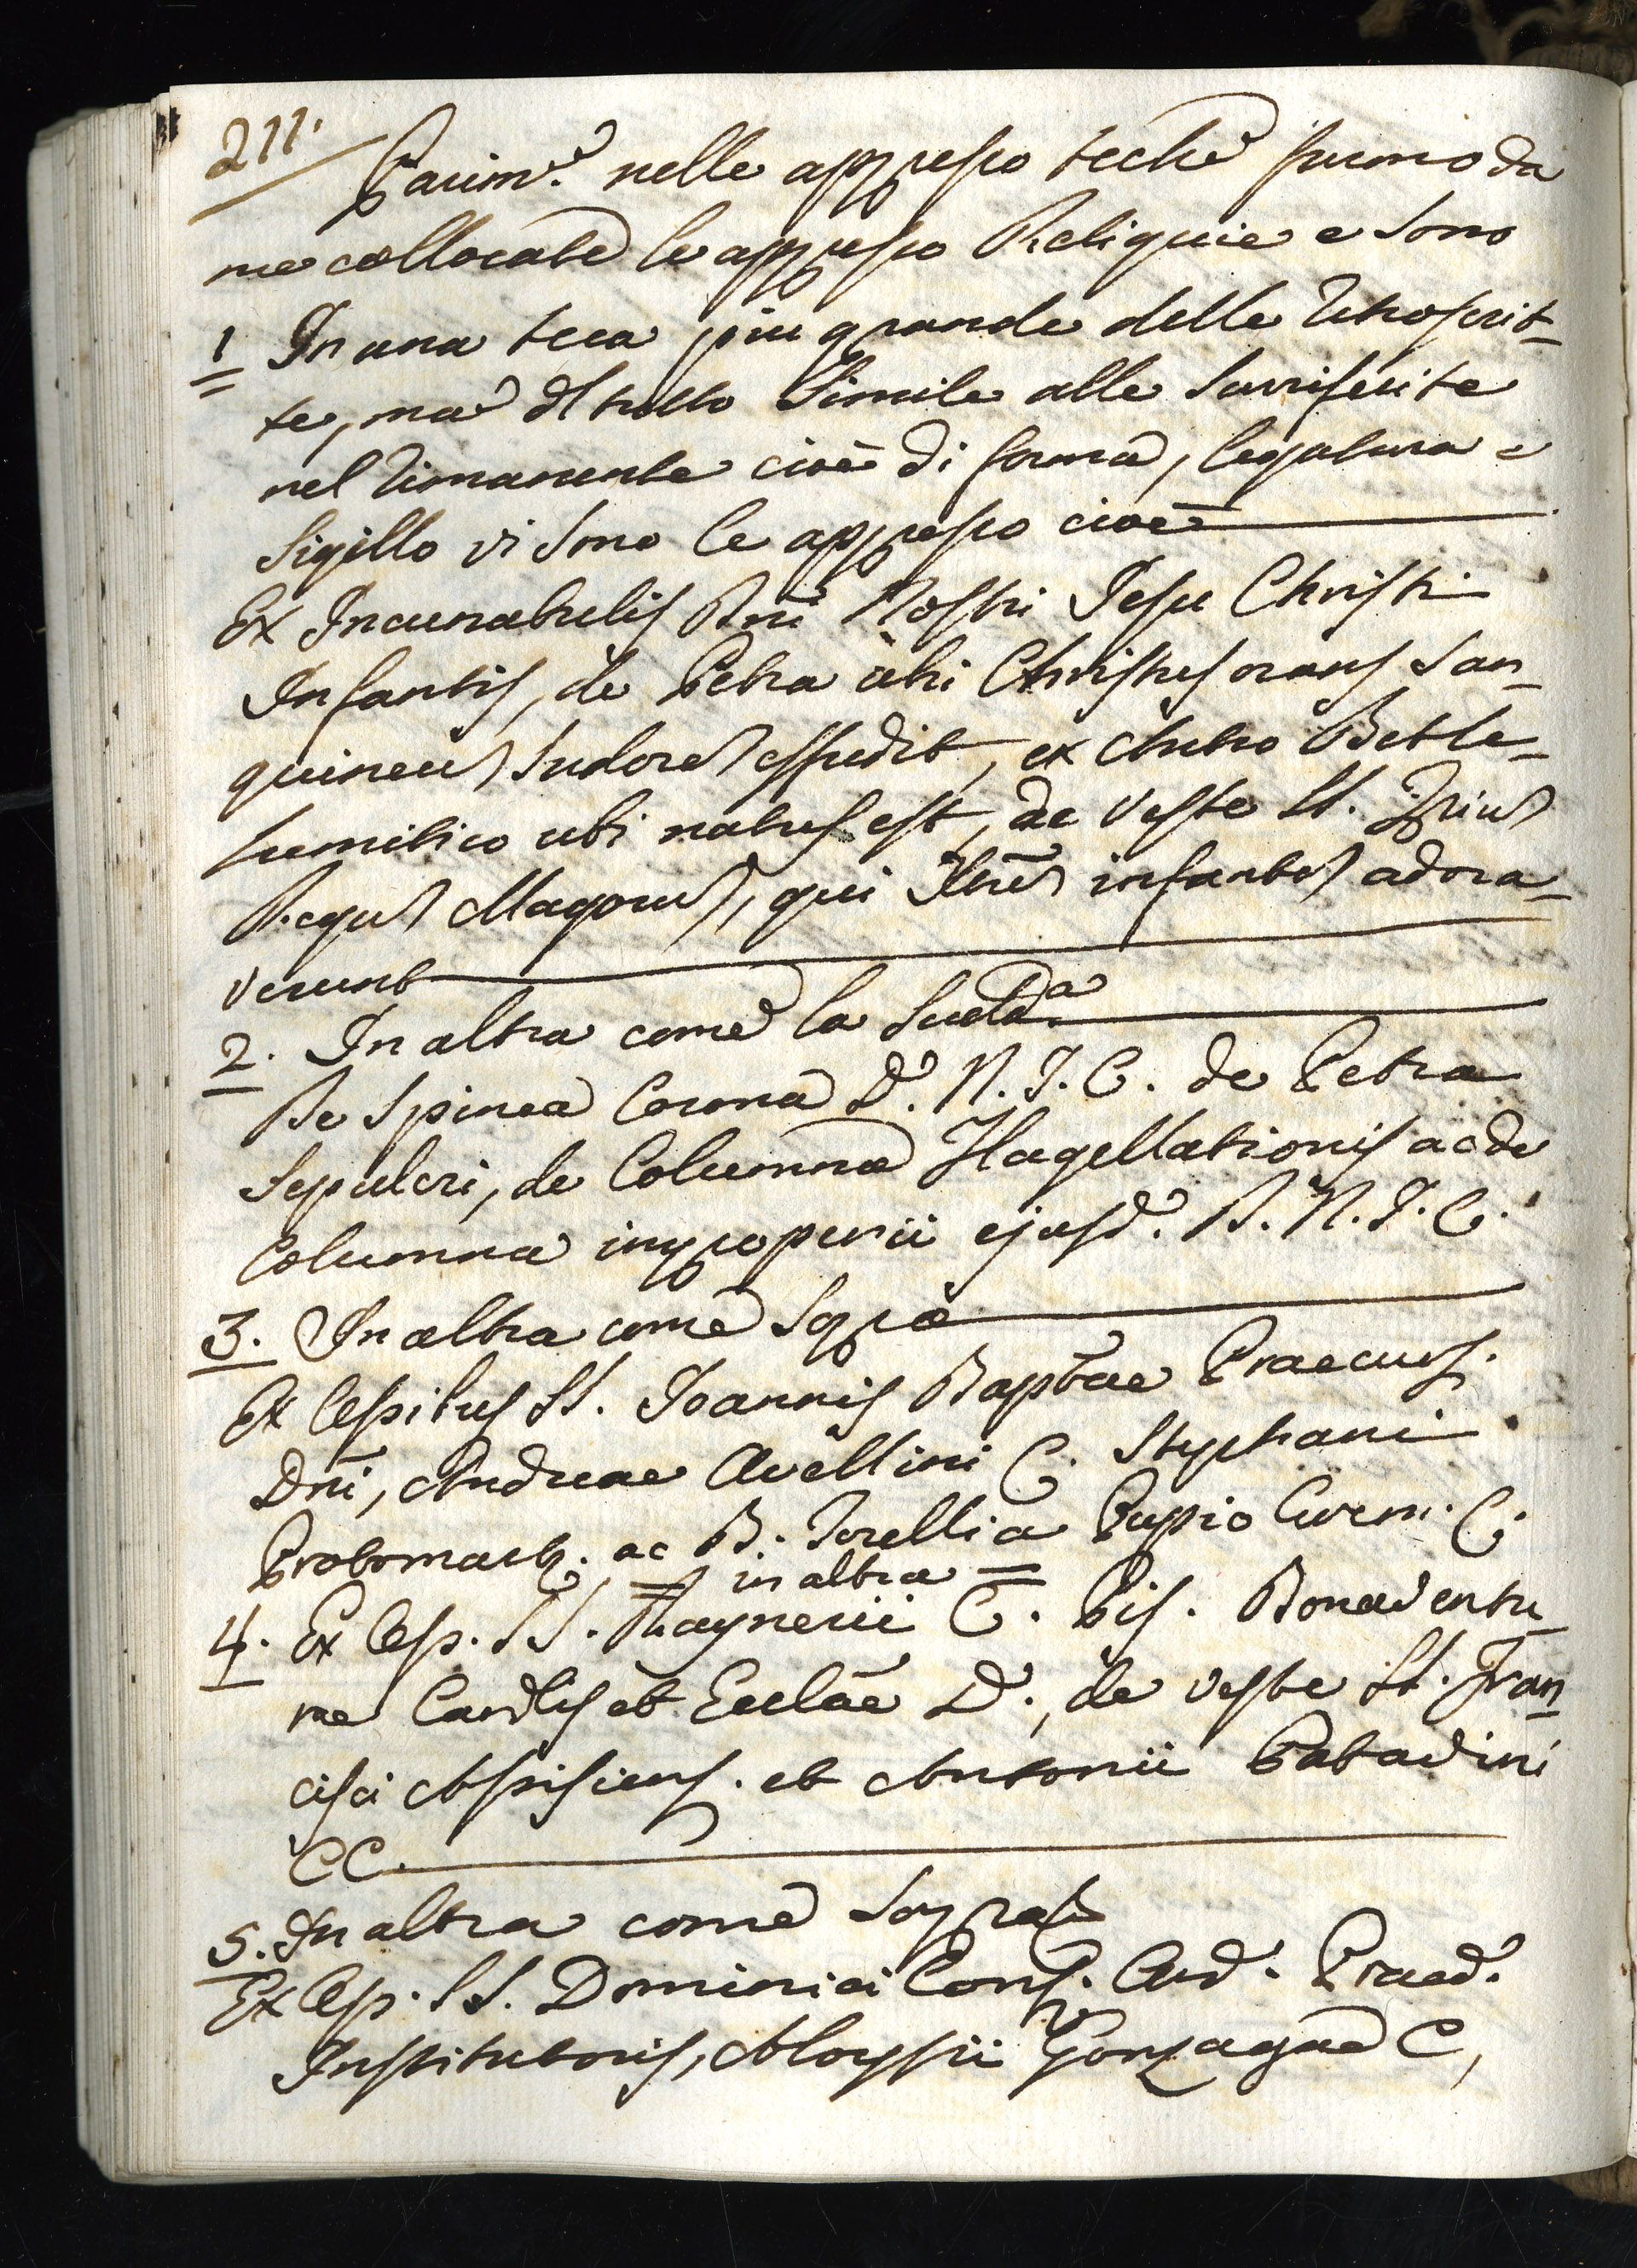 211.
Parim.e nelle appresso teche furno da
me collocate le appresso Reliquie e sono
1 In una teca piu grande delle retroscrit-
te, ma del tutto simile alle surriferite
nel rimanente cioè di forma, legatura e
sigillo vi sono le appresso cioè
Ex Incunabulis Dni Nostri Jesu Christi
Infantis, de Petra ubi Christus orans san-
guineum sudorem effudit, ex Antro Betle-
hemitico ubi natus est, de Veste SS. Trium
Regum Magorum, qui Jesum infantem adora-
verunt
2. In altra come la sudd.a
De Spinea Corona D. N. J. C. de Petra
Sepulcri, de Columna Flagellationis ac de
Columna improperii ejusd. D. N. J. C.
3. In altra come sopra
Ex Ossibus SS. Joannis Baptae Praecurs.
Dni, Andreae Avellini C. Stephani
Protomart. ac B. Torelli a Puppio Erem. C.
= in altra =
4. Ex Oss. SS. Raynerii C. Pis. Bonaventu-
rae Cardlis et Ecclae D., de veste SS. Fran-
cisci Assisiens. et Antonii Patavini
CC.
5. In altra come sopra
Ex Oss. SS. Dominici Conf. Ord. Praed.
Institutoris, Aloysii Gonzagae C,